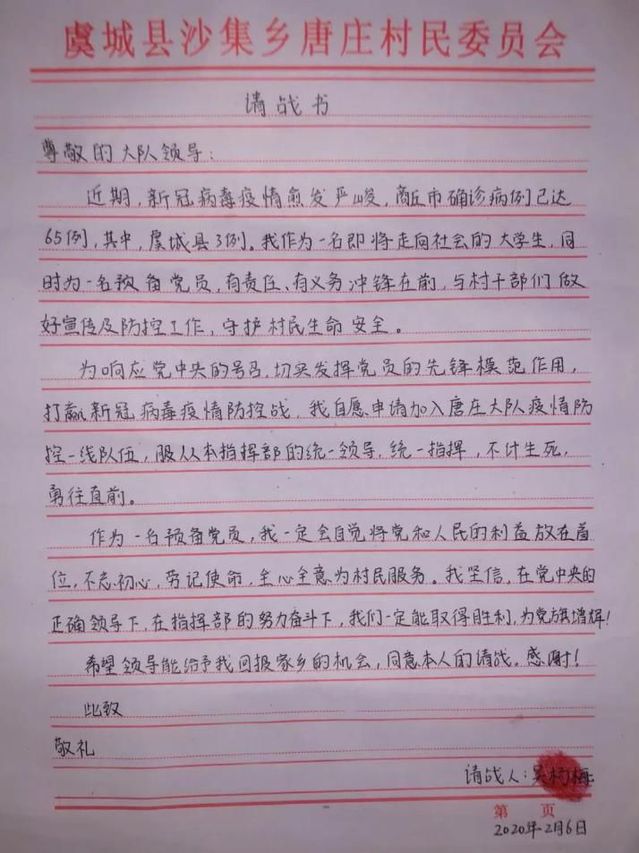 虞城县沙集乡唐庄村民委员会
请战书
尊敬的大队领导：
近期，新冠病毒疫情愈发严峻，商丘市确诊病例已达
65例，其中，虞城县3例。我作为一名即将走向社会的大学生，同
时为一名预备党员，有责任、有义务冲锋在前，与村干部们做
好宣传及防控工作，守护村民生命安全。
为响应党中央的号召，切实发挥党员的先锋模范作用，
打赢新冠病毒疫情防控战，我自愿申请加入唐庄大队疫情防
控一线队伍，服从本指挥部的统一领导，统一指挥，不计生死，
勇往直前。
作为一名预备党员，我一定会自觉将党和人民的利益放在首
位，不忘初心，劳记使命，全心全意为村民服务。我坚信，在党中央的
正确领导下，在指挥部的努力奋斗下，我们一定能取得胜利，为党旗增辉！
希望领导能给予我回报家乡的机会，同意本人的请战。感谢！
此致
敬礼
请战人：吴梅
第 页
2020年2月6日